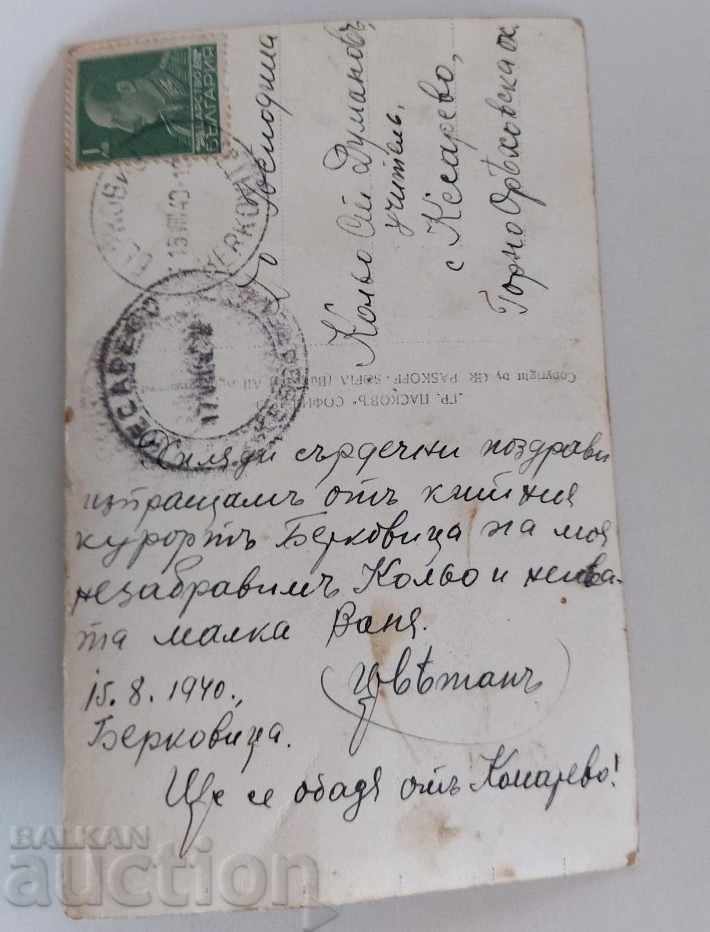 1
ЦАРСТВО
БЪЛГАРИЯ
15.VIII.40
BERKOVITZA
КЕСАРЕВО
До Господина
Кольо Ст Думановъ,
учитель.
с Кесарево,
Горно Орѣховска ок.
Copyright by GR. PASKOFF-SOFIA
"ГР. ПАСКОВЪ" СОФИЯ
Хиляди сърдечни поздрави
изпращамъ отъ китния
курортъ Берковица на моя
незабравимъ Кольо и негова-
та малка Ваня.
15.8.1940.,
Цвѣтанъ
Берковица.
Ще се обадя отъ Комарево!
BALKAN
auction